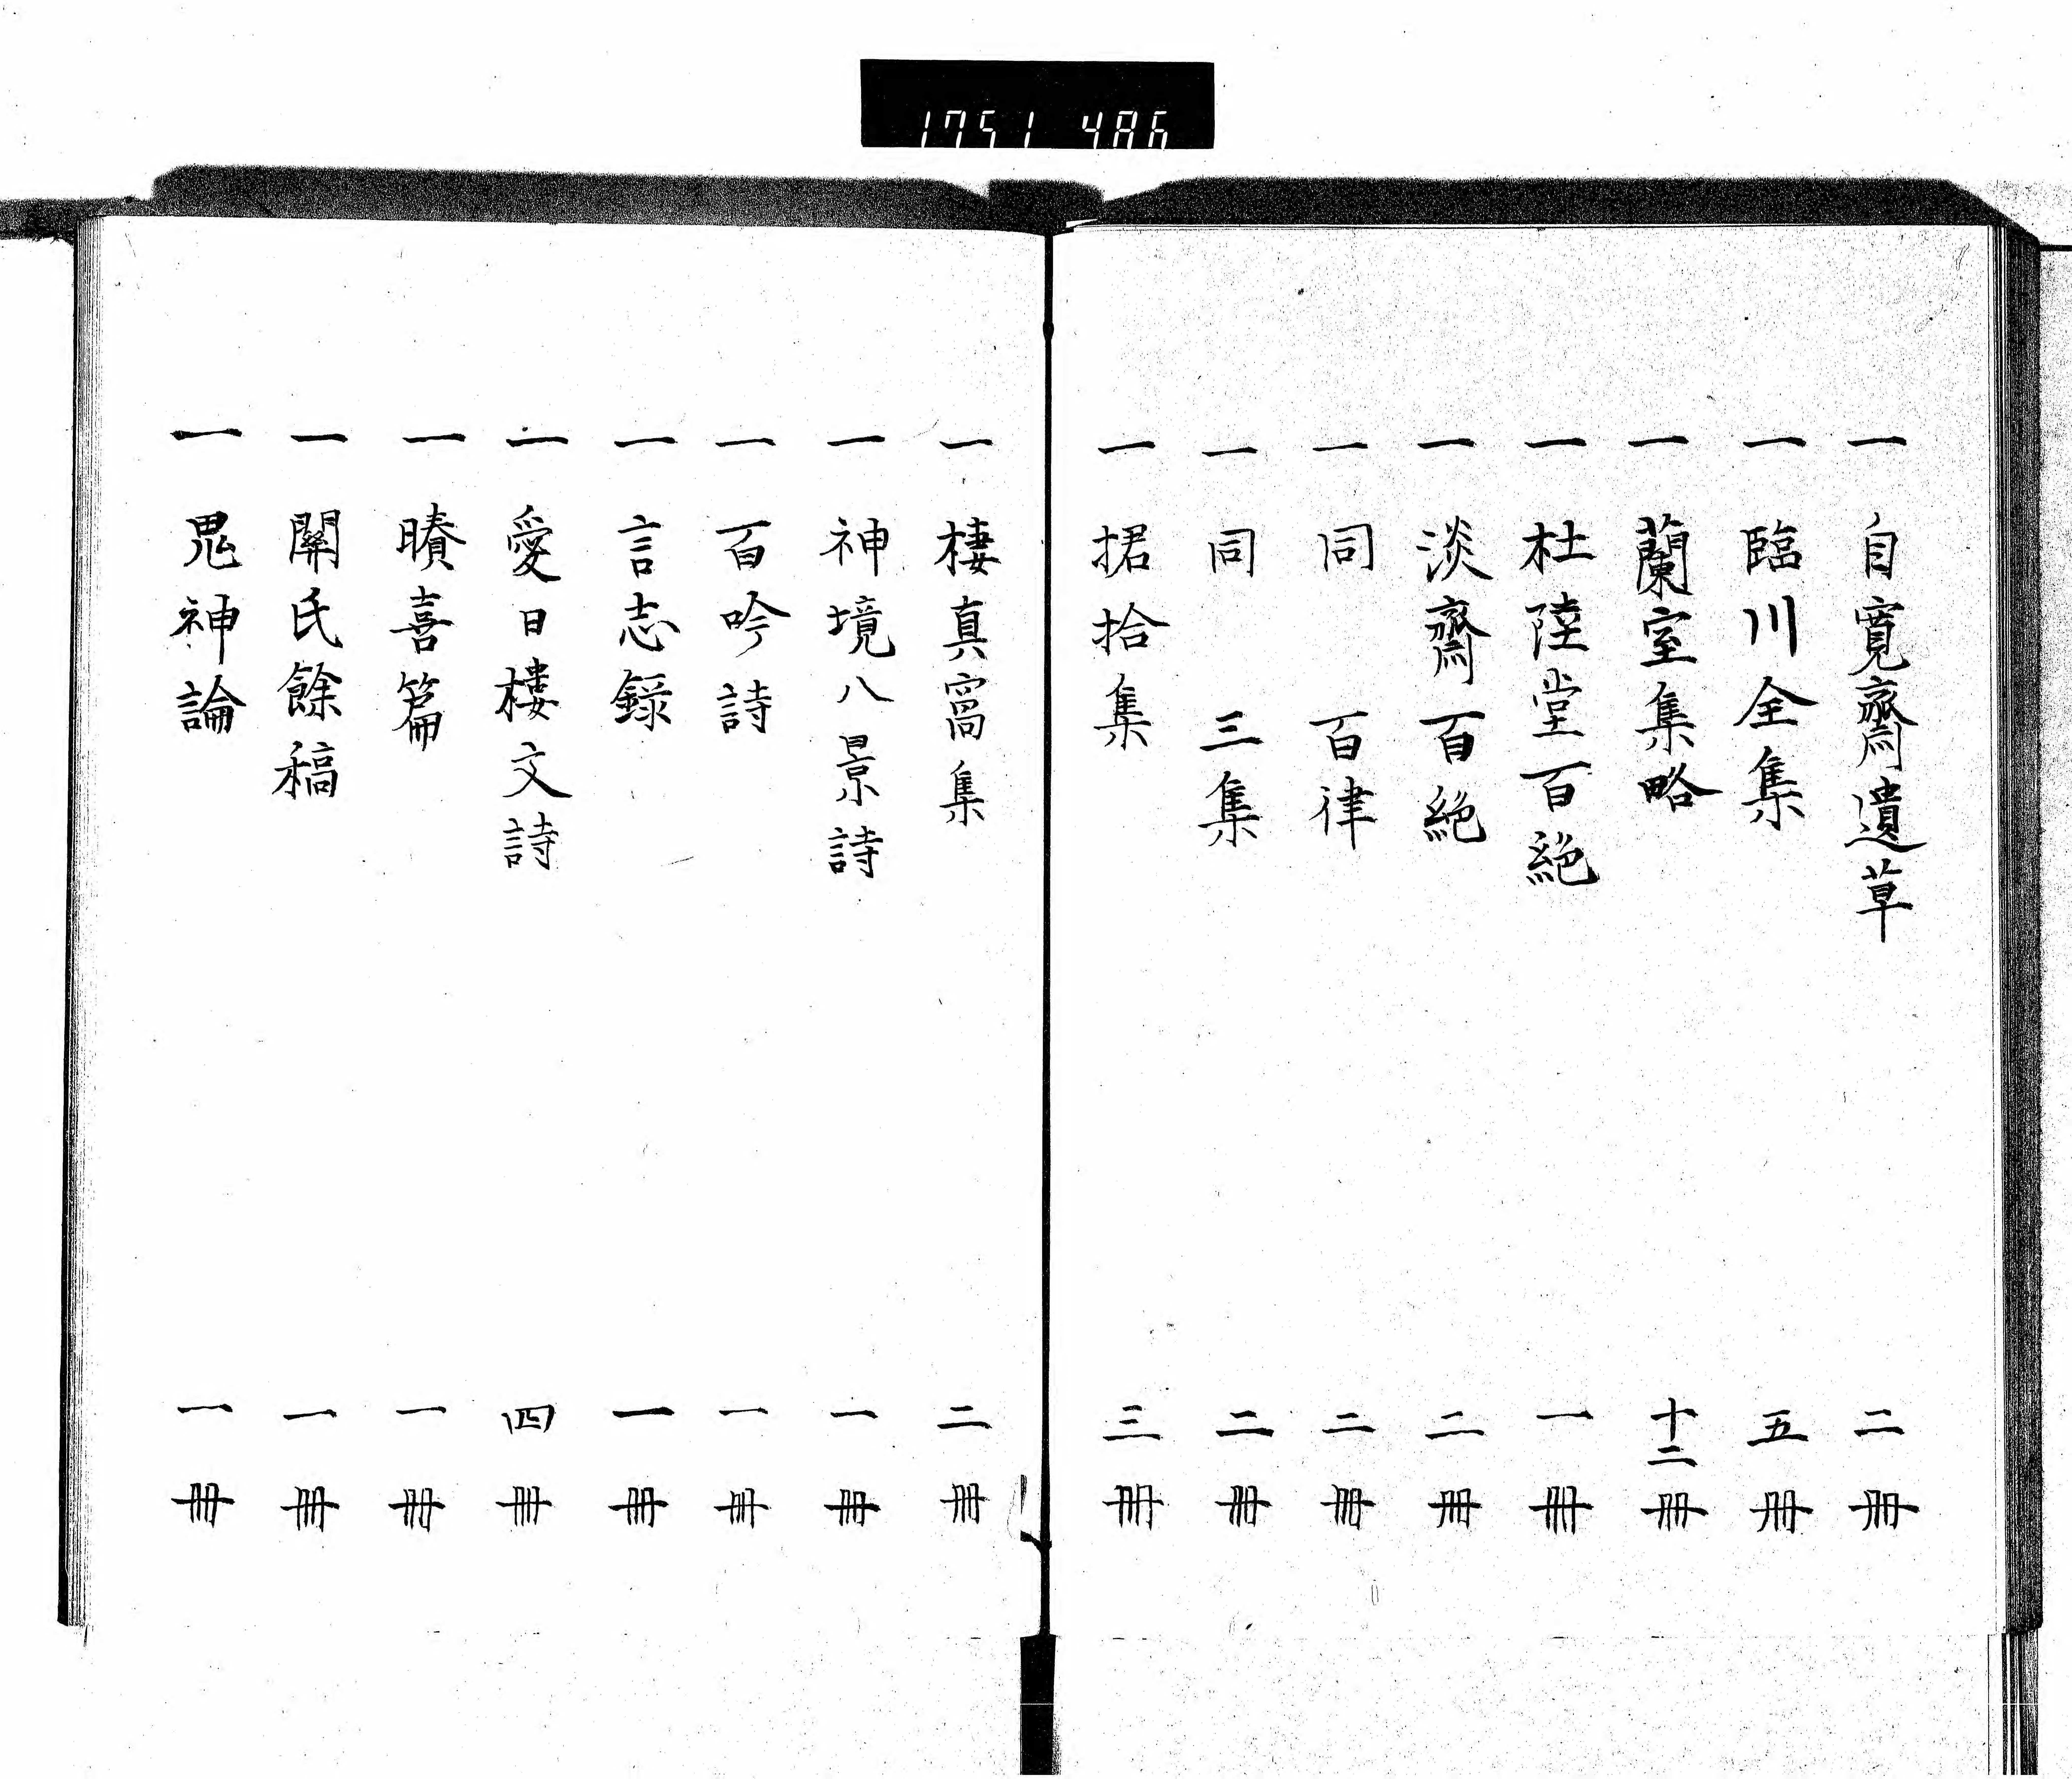 1751 486
一 自寛齋遺草 二冊
一 臨川全集 五冊
一 蘭室集略 十二冊
一 杜陸堂百絶 一冊
一 淡齋百絶 二冊
一 同 百律 二冊
一 同 三集 二冊
一 捃拾集 三冊
一 棲真窩集 二冊
一 神境八景詩 一冊
一 百吟詩 一冊
一 言志録 一冊
一 愛日樓文詩 四冊
一 喜篇 一冊
一 關氏餘稿 一冊
一 鬼神論 一冊